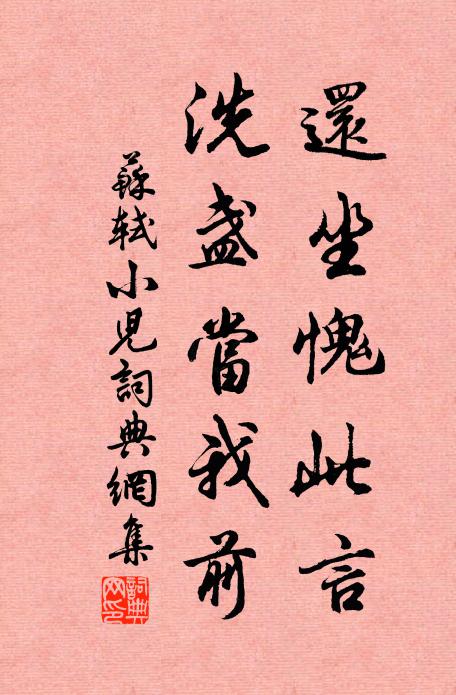 還坐愧此言
洗盞當我前
蘇軾小兒詞典網集
詞典網印